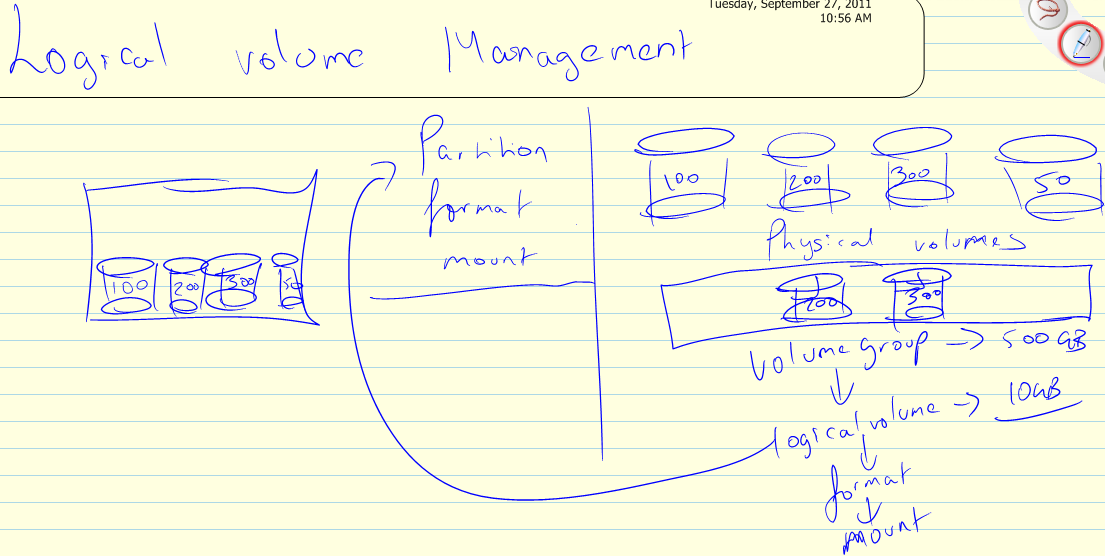 Tuesday, September 27, 2011
10:56 AM
Logical volume Management
Partition
format
mount
100 200 300 50
100 200 300 50
Physical volumes
200 300
volume group → 500 GB
↓
logical volume → 10GB
↓
format
↓
mount